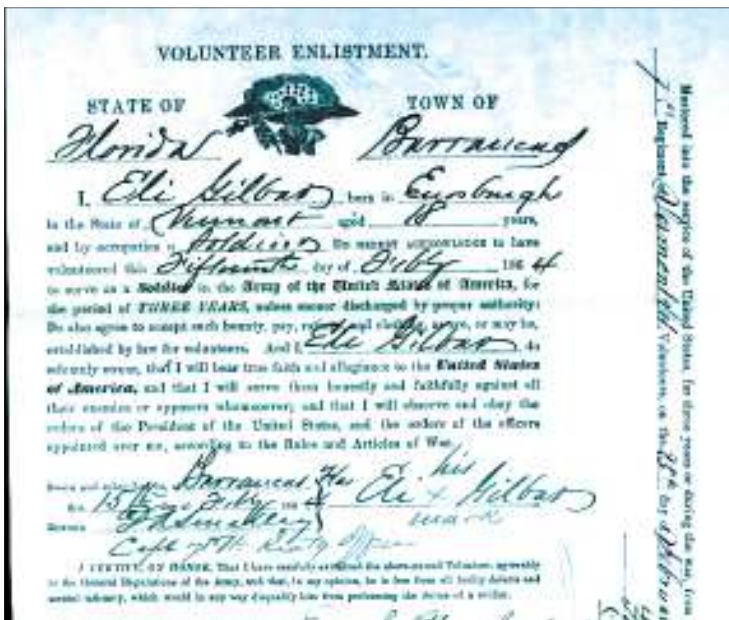 VOLUNTEER ENLISTMENT.
STATE OF TOWN OF
Florida Barrancas
I, Eli Gilbar born in Enosburgh
in the State of Vermont aged 18 years,
and by occupation a Soldier Do HEREBY ACKNOWLEDGE to have
volunteered this Fifteenth day of Feby 1864
to serve as a Soldier in the Army of the United States of America, for
the period of THREE YEARS, unless sooner discharged by proper authority:
Do also agree to accept such bounty, pay, and are, or may be,
established by law for volunteers. And I, Eli Gilbar do
solemnly swear, that I will bear true faith and allegiance to the United States
of America, and that I will serve them honestly and faithfully against all
their enemies or opposers whomsoever; and that I will observe and obey the
orders of the President of the United States, and the orders of the officers
appointed over me, according to the Rules and Articles of War.
Barrancas Fla his
15 Feby 1864 Eli x Gilbar
BEFORE mark
Capt 7th
I CERTIFY, ON HONOR, That I have carefully examined the above-named Volunteer, agreeably
to the General Regulations of the Army, and that, in my opinion, he is free from all bodily defects and
mental infirmity, which would in any way disqualify him from performing the duties of a soldier.
Mustered into the service of the United States, for three years or during the war, from
7th Regiment of Vermont Volunteers, on the day of